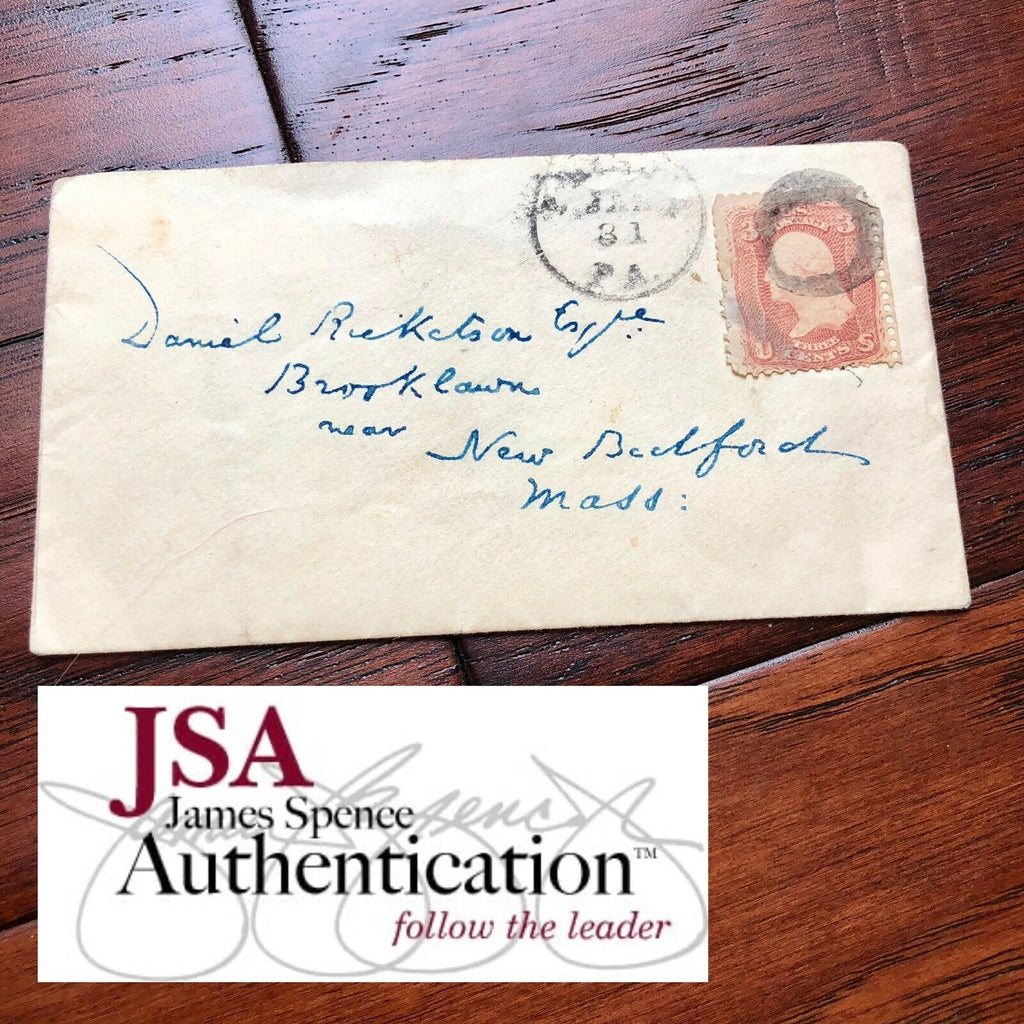 31
PA.
3 3
U THREE S
CENTS
Daniel Ricketson Esqre.
Brooklawn
near
New Bedford
Mass:
JSA
James Spence
Authentication™
follow the leader